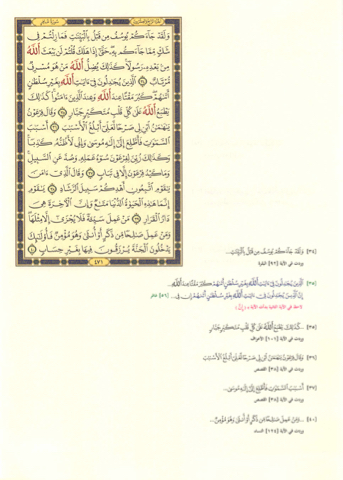 وَلَقَدْ جَاءَكُمْ يُوسُفُ مِن قَبْلُ بِالْبَيِّنَاتِ فَمَا زِلْتُمْ فِي
شَكٍّ مِّمَّا جَاءَكُم بِهِ حَتَّى إِذَا هَلَكَ قُلْتُمْ لَن يَبْعَثَ اللَّهُ
مِن بَعْدِهِ رَسُولًا كَذَلِكَ يُضِلُّ اللَّهُ مَنْ هُوَ مُسْرِفٌ
مُّرْتَابٌ ٣٤ الَّذِينَ يُجَادِلُونَ فِي آيَاتِ اللَّهِ بِغَيْرِ سُلْطَانٍ
أَتَاهُمْ كَبُرَ مَقْتًا عِندَ اللَّهِ وَعِندَ الَّذِينَ آمَنُوا كَذَلِكَ
يَطْبَعُ اللَّهُ عَلَى كُلِّ قَلْبِ مُتَكَبِّرٍ جَبَّارٍ ٣٥ وَقَالَ فِرْعَوْنُ
يَا هَامَانُ ابْنِ لِي صَرْحًا لَّعَلِّي أَبْلُغُ الْأَسْبَابَ ٣٦ أَسْبَابَ
السَّمَاوَاتِ فَأَطَّلِعَ إِلَى إِلَهِ مُوسَى وَإِنِّي لَأَظُنُّهُ كَاذِبًا
وَكَذَلِكَ زُيِّنَ لِفِرْعَوْنَ سُوءُ عَمَلِهِ وَصُدَّ عَنِ السَّبِيلِ
وَمَا كَيْدُ فِرْعَوْنَ إِلَّا فِي تَبَابٍ ٣٧ وَقَالَ الَّذِي آمَنَ
يَا قَوْمِ اتَّبِعُونِ أَهْدِكُمْ سَبِيلَ الرَّشَادِ ٣٨ يَا قَوْمِ
إِنَّمَا هَذِهِ الْحَيَاةُ الدُّنْيَا مَتَاعٌ وَإِنَّ الْآخِرَةَ هِيَ
دَارُ الْقَرَارِ ٣٩ مَنْ عَمِلَ سَيِّئَةً فَلَا يُجْزَى إِلَّا مِثْلَهَا
وَمَنْ عَمِلَ صَالِحًا مِّن ذَكَرٍ أَوْ أُنثَى وَهُوَ مُؤْمِنٌ فَأُولَئِكَ
يَدْخُلُونَ الْجَنَّةَ يُرْزَقُونَ فِيهَا بِغَيْرِ حِسَابٍ ٤٠
٤٧١
[٣٤] وَلَقَدْ جَاءَكُمْ يُوسُفُ مِن قَبْلُ بِالْبَيِّنَاتِ...
وردت في الآية [٩٢] البقرة
[٣٥] الَّذِينَ يُجَادِلُونَ فِي آيَاتِ اللَّهِ بِغَيْرِ سُلْطَانٍ أَتَاهُمْ كَبُرَ مَقْتًا عِندَ اللَّهِ...
إِنَّ الَّذِينَ يُجَادِلُونَ فِي آيَاتِ اللَّهِ بِغَيْرِ سُلْطَانٍ أَتَاهُمْ إِن فِي... [٥٦] غافر
[٣٥] ...كَذَلِكَ يَطْبَعُ اللَّهُ عَلَى كُلِّ قَلْبِ مُتَكَبِّرٍ جَبَّارٍ
وردت في الآية [١٠١] الأعراف
[٣٦] وَقَالَ فِرْعَوْنُ يَا هَامَانُ ابْنِ لِي صَرْحًا لَّعَلِّي أَبْلُغُ الْأَسْبَابَ
وردت في الآية [٣٨] القصص
[٣٧] أَسْبَابَ السَّمَاوَاتِ فَأَطَّلِعَ إِلَى إِلَهِ مُوسَى...
وردت في الآية [٣٨] القصص
[٤٠] ...وَمَنْ عَمِلَ صَالِحًا مِّن ذَكَرٍ أَوْ أُنثَى وَهُوَ مُؤْمِنٌ...
وردت في الآية [١٢٤] النساء